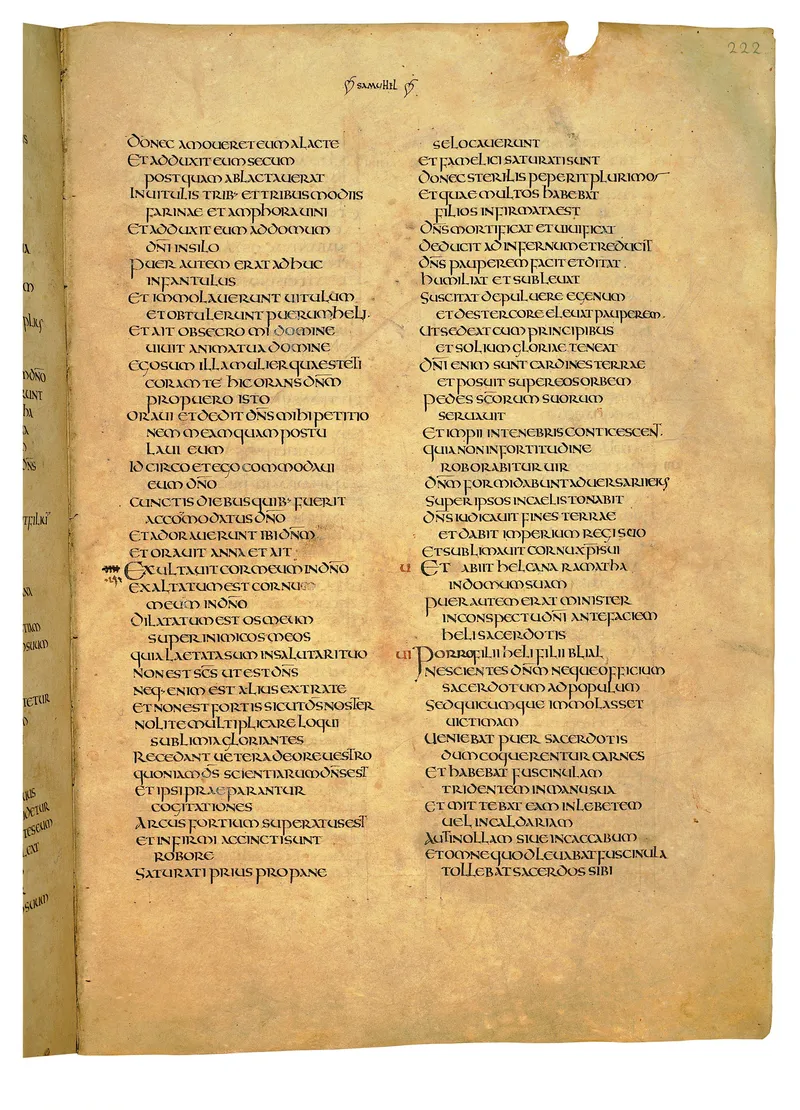 222
SAMUHEL
DONEC AMOUERET EUM A LACTE
ET ADDUXIT EUM SECUM
POSTQUAM ABLACTAUERAT
IN UITULIS TRIB· ET TRIBUS MODIIS
FARINAE ET AMPHORA UINI
ET ADDUXIT EUM AD DOMUM
DN̄I IN SILO
PUER AUTEM ERAT ADHUC
INFANTULUS
ET IMMOLAUERUNT UITULUM
ET OBTULERUNT PUERUM HELI·
ET AIT OBSECRO MI DOMINE
UIUIT ANIMA TUA DOMINE
EGO SUM ILLA MULIER QUAE STETI
CORAM TE HIC ORANS DN̄M
PRO PUERO ISTO
ORAUI ET DEDIT DN̄S MIHI PETITIO
NEM MEAM QUAM POSTU
LAUI EUM
IDCIRCO ET EGO COMMODAUI
EUM DN̄O
CUNCTIS DIEBUS QUIB· FUERIT
ACCOMODATUS DN̄O
ET ADORAUERUNT IBI DN̄M
ET ORAUIT ANNA ET AIT
EXULTAUIT COR MEUM IN DN̄O
EXALTATUM EST CORNU
MEUM IN DN̄O
DILATATUM EST OS MEUM
SUPER INIMICOS MEOS
QUIA LAETATA SUM IN SALUTARI TUO
NON EST SC̄S UT EST DN̄S
NEQ· ENIM EST ALIUS EXTRA TE
ET NON EST FORTIS SICUT DS̄ NOSTER
NOLITE MULTIPLICARE LOQUI
SUBLIMIA GLORIANTES
RECEDANT UETERA DE ORE UESTRO
QUONIAM DS̄ SCIENTIARUM DN̄S EST
ET IPSI PRAEPARANTUR
COGITATIONES
ARCUS FORTIUM SUPERATUS EST
ET INFIRMI ACCINCTI SUNT
ROBORE
SATURATI PRIUS PRO PANE
SE LOCAUERUNT
ET FAMELICI SATURATI SUNT
DONEC STERILIS PEPERIT PLURIMOS
ET QUAE MULTOS HABEBAT
FILIOS INFIRMATA EST
DN̄S MORTIFICAT ET UIUIFICAT
DEDUCIT AD INFERNUM ET REDUCIT
DN̄S PAUPEREM FACIT ET DITAT·
HUMILIAT ET SUBLEUAT
SUSCITAT DE PULUERE EGENUM
ET DE STERCORE ELEUAT PAUPEREM·
UT SEDEAT CUM PRINCIPIBUS
ET SOLIUM GLORIAE TENEAT
DN̄I ENIM SUNT CARDINES TERRAE
ET POSUIT SUPER EOS ORBEM
PEDES SC̄ORUM SUORUM
SERUAUIT
ET IMPII IN TENEBRIS CONTICESCENT·
QUIA NON IN FORTITUDINE
ROBORABITUR UIR
DN̄M FORMIDABUNT ADUERSARII EIUS
SUPER IPSOS IN CAELIS TONABIT
DN̄S IUDICAUIT FINES TERRAE
ET DABIT IMPERIUM REGI SUO
ET SUBLIMAUIT CORNU XPI SUI
U ET ABIIT HELCANA RAMATHA
IN DOMUM SUAM
PUER AUTEM ERAT MINISTER
IN CONSPECTU DN̄I ANTE FACIEM
HELI SACERDOTIS
UI PORRO FILII HELI FILII BLIAL
NESCIENTES DN̄M NEQUE OFFICIUM
SACERDOTUM AD POPULUM
SED QUICUMQUE IMMOLASSET
UICTIMAM
UENIEBAT PUER SACERDOTIS
DUM COQUERENTUR CARNES
ET HABEBAT FUSCINULAM
TRIDENTEM IN MANU SUA
ET MITTEBAT EAM IN LEBETEM
UEL IN CALDARIAM
AUT IN OLLAM SIUE IN CACCABUM
ET OMNE QUOD LEUABAT FUSCINULA
TOLLEBAT SACERDOS SIBI